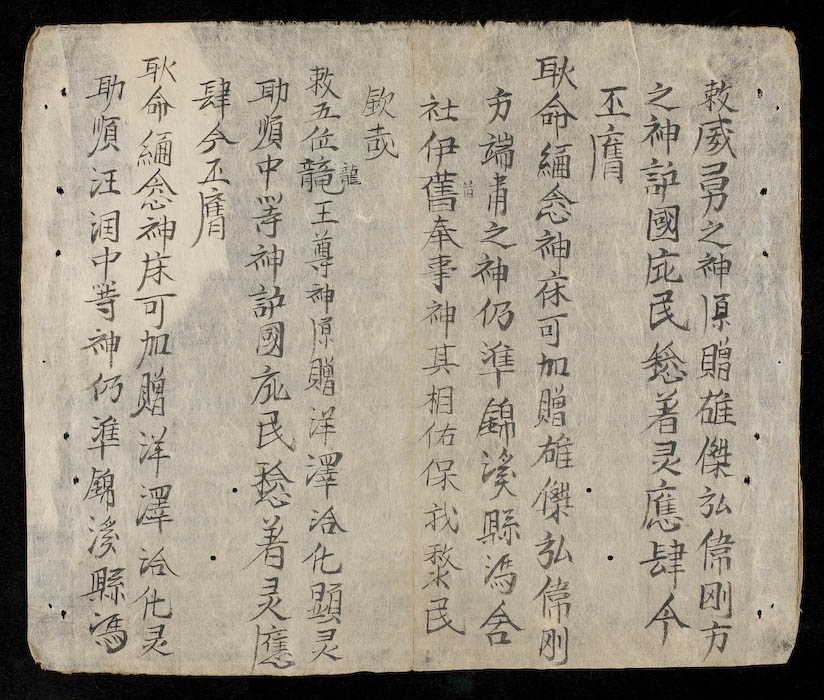 敕威勇之神原贈雄傑弘偉剛方
之神護國庇民稔著灵應肆今
丕膺
耿命緬念神庥可加贈雄傑弘偉剛
方端肅之神仍準錦溪縣馮舍
社伊舊奉事神其相佑保我黎民
欽哉
敕五位龍王尊神原贈洋澤洽化顯灵
助順中等神護國庇民稔著灵應
肆今丕膺
耿命緬念神庥可加贈洋澤洽化灵
助順汪润中等神仍準錦溪縣馮